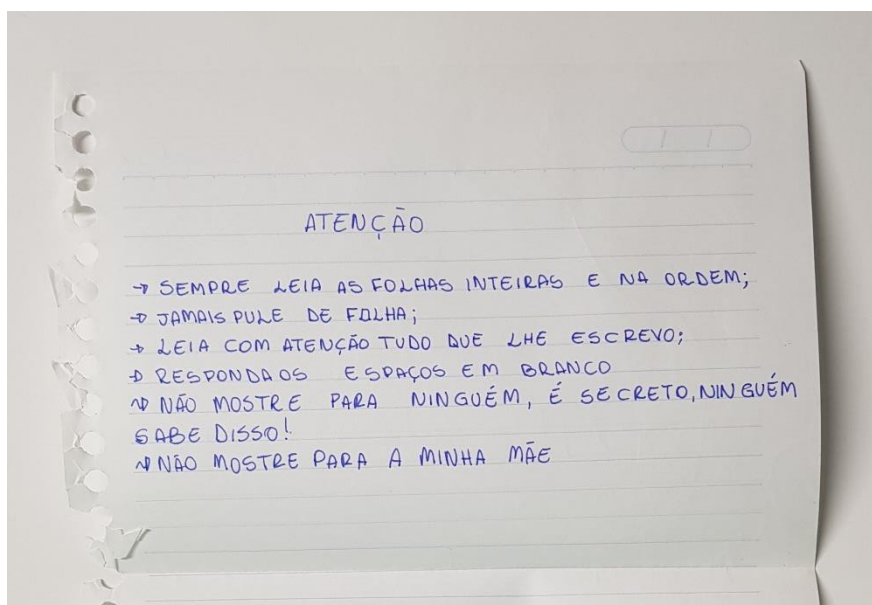 ATENÇÃO
→ SEMPRE LEIA AS FOLHAS INTEIRAS E NA ORDEM;
→ JAMAIS PULE DE FOLHA;
→ LEIA COM ATENÇÃO TUDO QUE LHE ESCREVO;
→ RESPONDA OS ESPAÇOS EM BRANCO
→ NÃO MOSTRE PARA NINGUÉM, É SECRETO, NINGUÉM
SABE DISSO!
→ NÃO MOSTRE PARA A MINHA MÃE